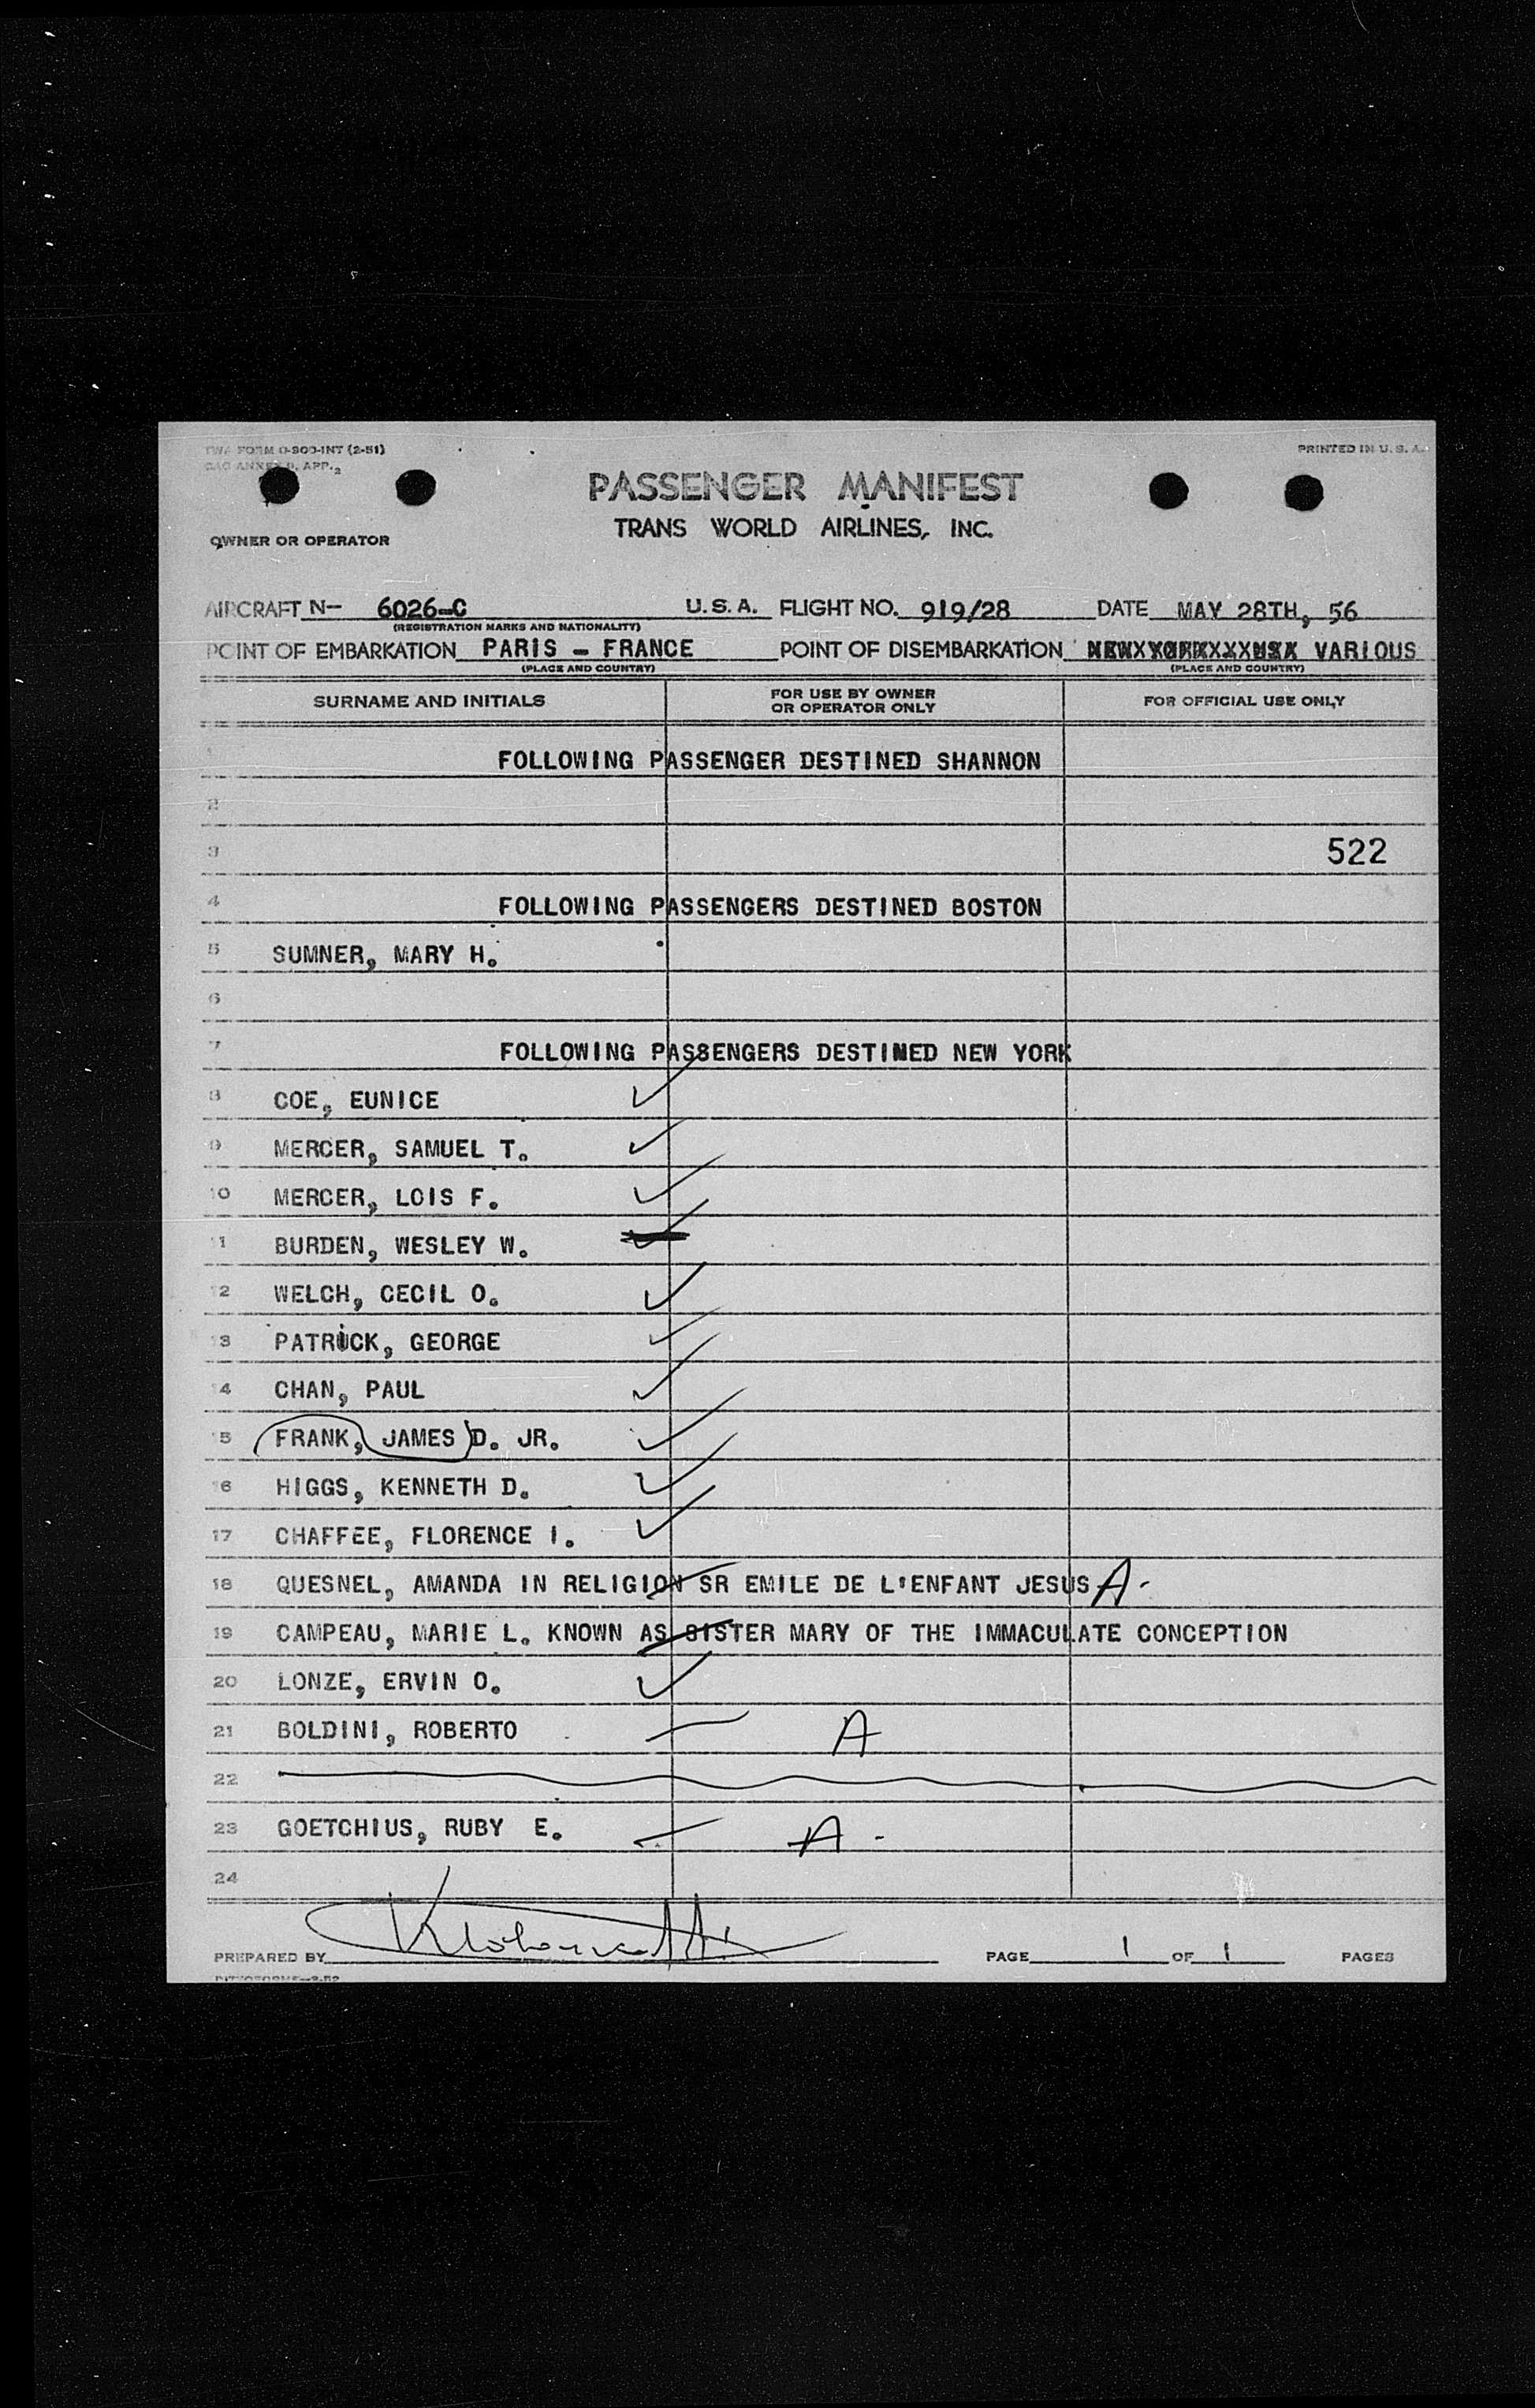 TWA FORM O-900-INT (2-51) PRINTED IN U. S. A.
APP. 2
PASSENGER MANIFEST
TRANS WORLD AIRLINES, INC.
OWNER OR OPERATOR
AIRCRAFT N- 6026-C U.S.A. FLIGHT NO. 919/28 DATE MAY 28TH, 56
(REGISTRATION MARKS AND NATIONALITY)
POINT OF EMBARKATION PARIS - FRANCE POINT OF DISEMBARKATION VARIOUS
(PLACE AND COUNTRY) (PLACE AND COUNTRY)
SURNAME AND INITIALS FOR USE BY OWNER OR OPERATOR ONLY FOR OFFICIAL USE ONLY
1 FOLLOWING PASSENGER DESTINED SHANNON
2
3 522
4 FOLLOWING PASSENGERS DESTINED BOSTON
5 SUMNER, MARY H.
6
7 FOLLOWING PASSENGERS DESTINED NEW YORK
8 COE, EUNICE
9 MERCER, SAMUEL T.
10 MERCER, LOIS F.
11 BURDEN, WESLEY W.
12 WELCH, CECIL O.
13 PATRICK, GEORGE
14 CHAN, PAUL
15 FRANK, JAMES D. JR.
16 HIGGS, KENNETH D.
17 CHAFFEE, FLORENCE I.
18 QUESNEL, AMANDA IN RELIGION SR EMILE DE L'ENFANT JESUS A -
19 CAMPEAU, MARIE L. KNOWN AS SISTER MARY OF THE IMMACULATE CONCEPTION
20 LONZE, ERVIN O.
21 BOLDINI, ROBERTO A
22
23 GOETCHIUS, RUBY E. A -
24
PREPARED BY PAGE 1 OF 1 PAGES